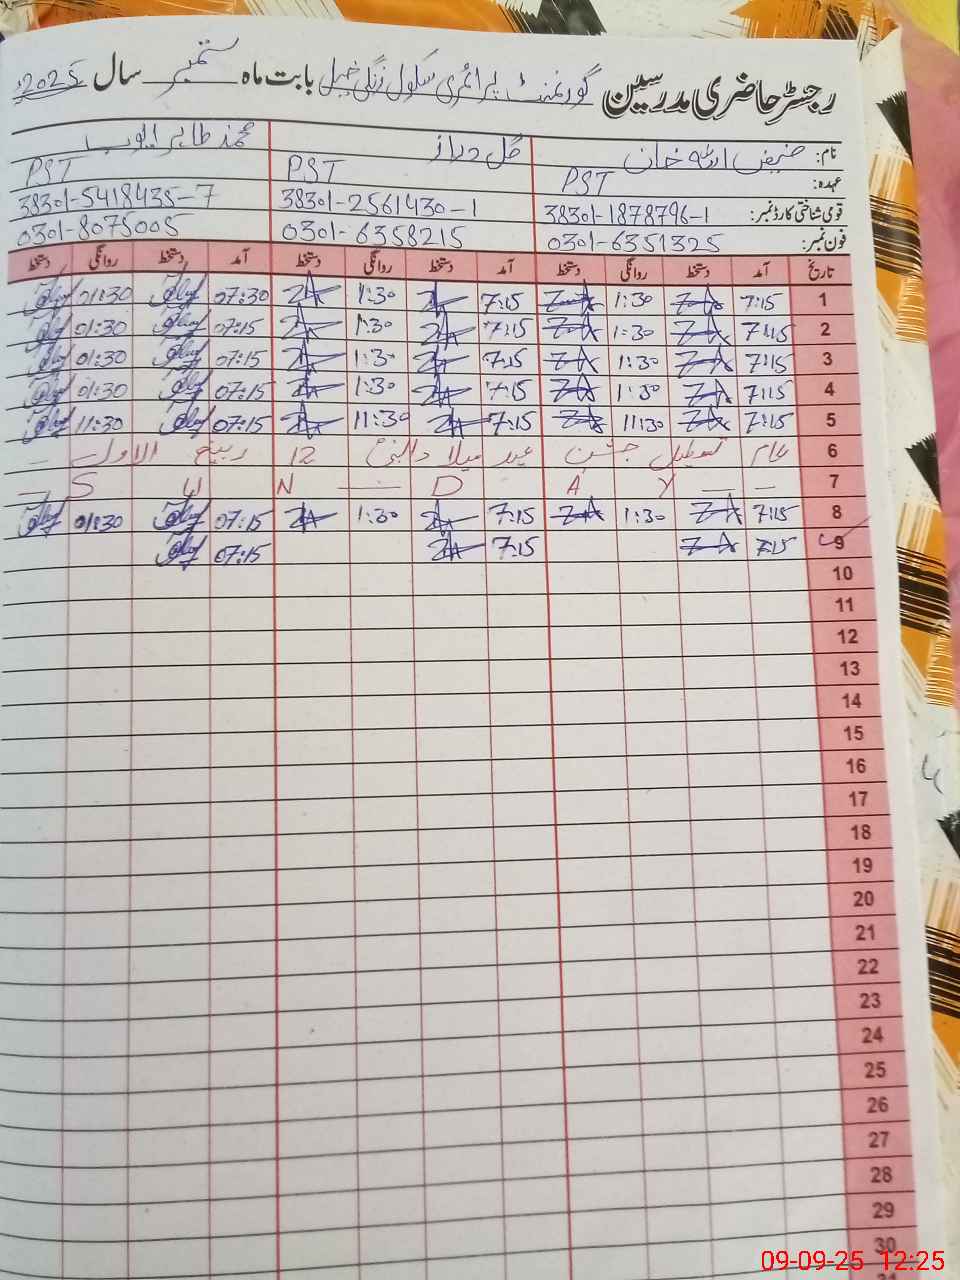 رجسٹر حاضری مدرسین گورنمنٹ پرائمری سکول زنگی خیل بابت ماہ ستمبر سال 2025ء
نام: حنیف اللہ خان گل دراز محمد طاہر ایوب
عہدہ: PST PST PST
قومی شناختی کارڈ نمبر: 38301-1878796-1 38301-2561430-1 38301-5418435-7
فون نمبر: 0301-6351325 0301-6358215 0301-8075005
تاریخ آمد دستخط روانگی دستخط آمد دستخط روانگی دستخط آمد دستخط روانگی دستخط
1 7:15 1:30 7:15 1:30 07:30 01:30
2 7:15 1:30 7:15 1:30 07:15 01:30
3 7:15 1:30 7:15 1:30 07:15 01:30
4 7:15 1:30 7:15 1:30 07:15 01:30
5 7:15 11:30 7:15 11:30 07:15 11:30
6 عام تعطیل جشن عید میلاد النبیؐ 12 ربیع الاول
7 S U N D A Y
8 7:15 1:30 7:15 1:30 07:15 01:30
9 7:15 7:15 07:15
10
11
12
13
14
15
16
17
18
19
20
21
22
23
24
25
26
27
28
29
30
09-09-25 12:25